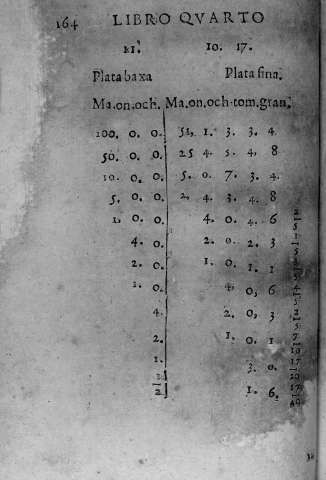 164 LIBRO QVARTO
11. 10. 17.
Plata baxa Plata fina.
Ma. on. och. Ma. on. och. tom. gran.
100. 0. 0. 51, 1. 3. 3. 4
50. 0. 0. 25 4. 5. 4, 8
10. 0. 0. 5. 0. 7. 3. 4.
5. 0. 0. 2, 4. 3. 4. 8
1, 0. 0. 4. 0. 4. 6 2/5
4. 0. 2. 0. 2. 3 1/5
2. 0. 1. 0. 1. 1
1. 0. 4. 0, 6 4/5
4. 2. 0, 3 2/5
2. 1. 0. 1 7/10
1. 3. 0. 17/20
1/2 1. 6. 17/40